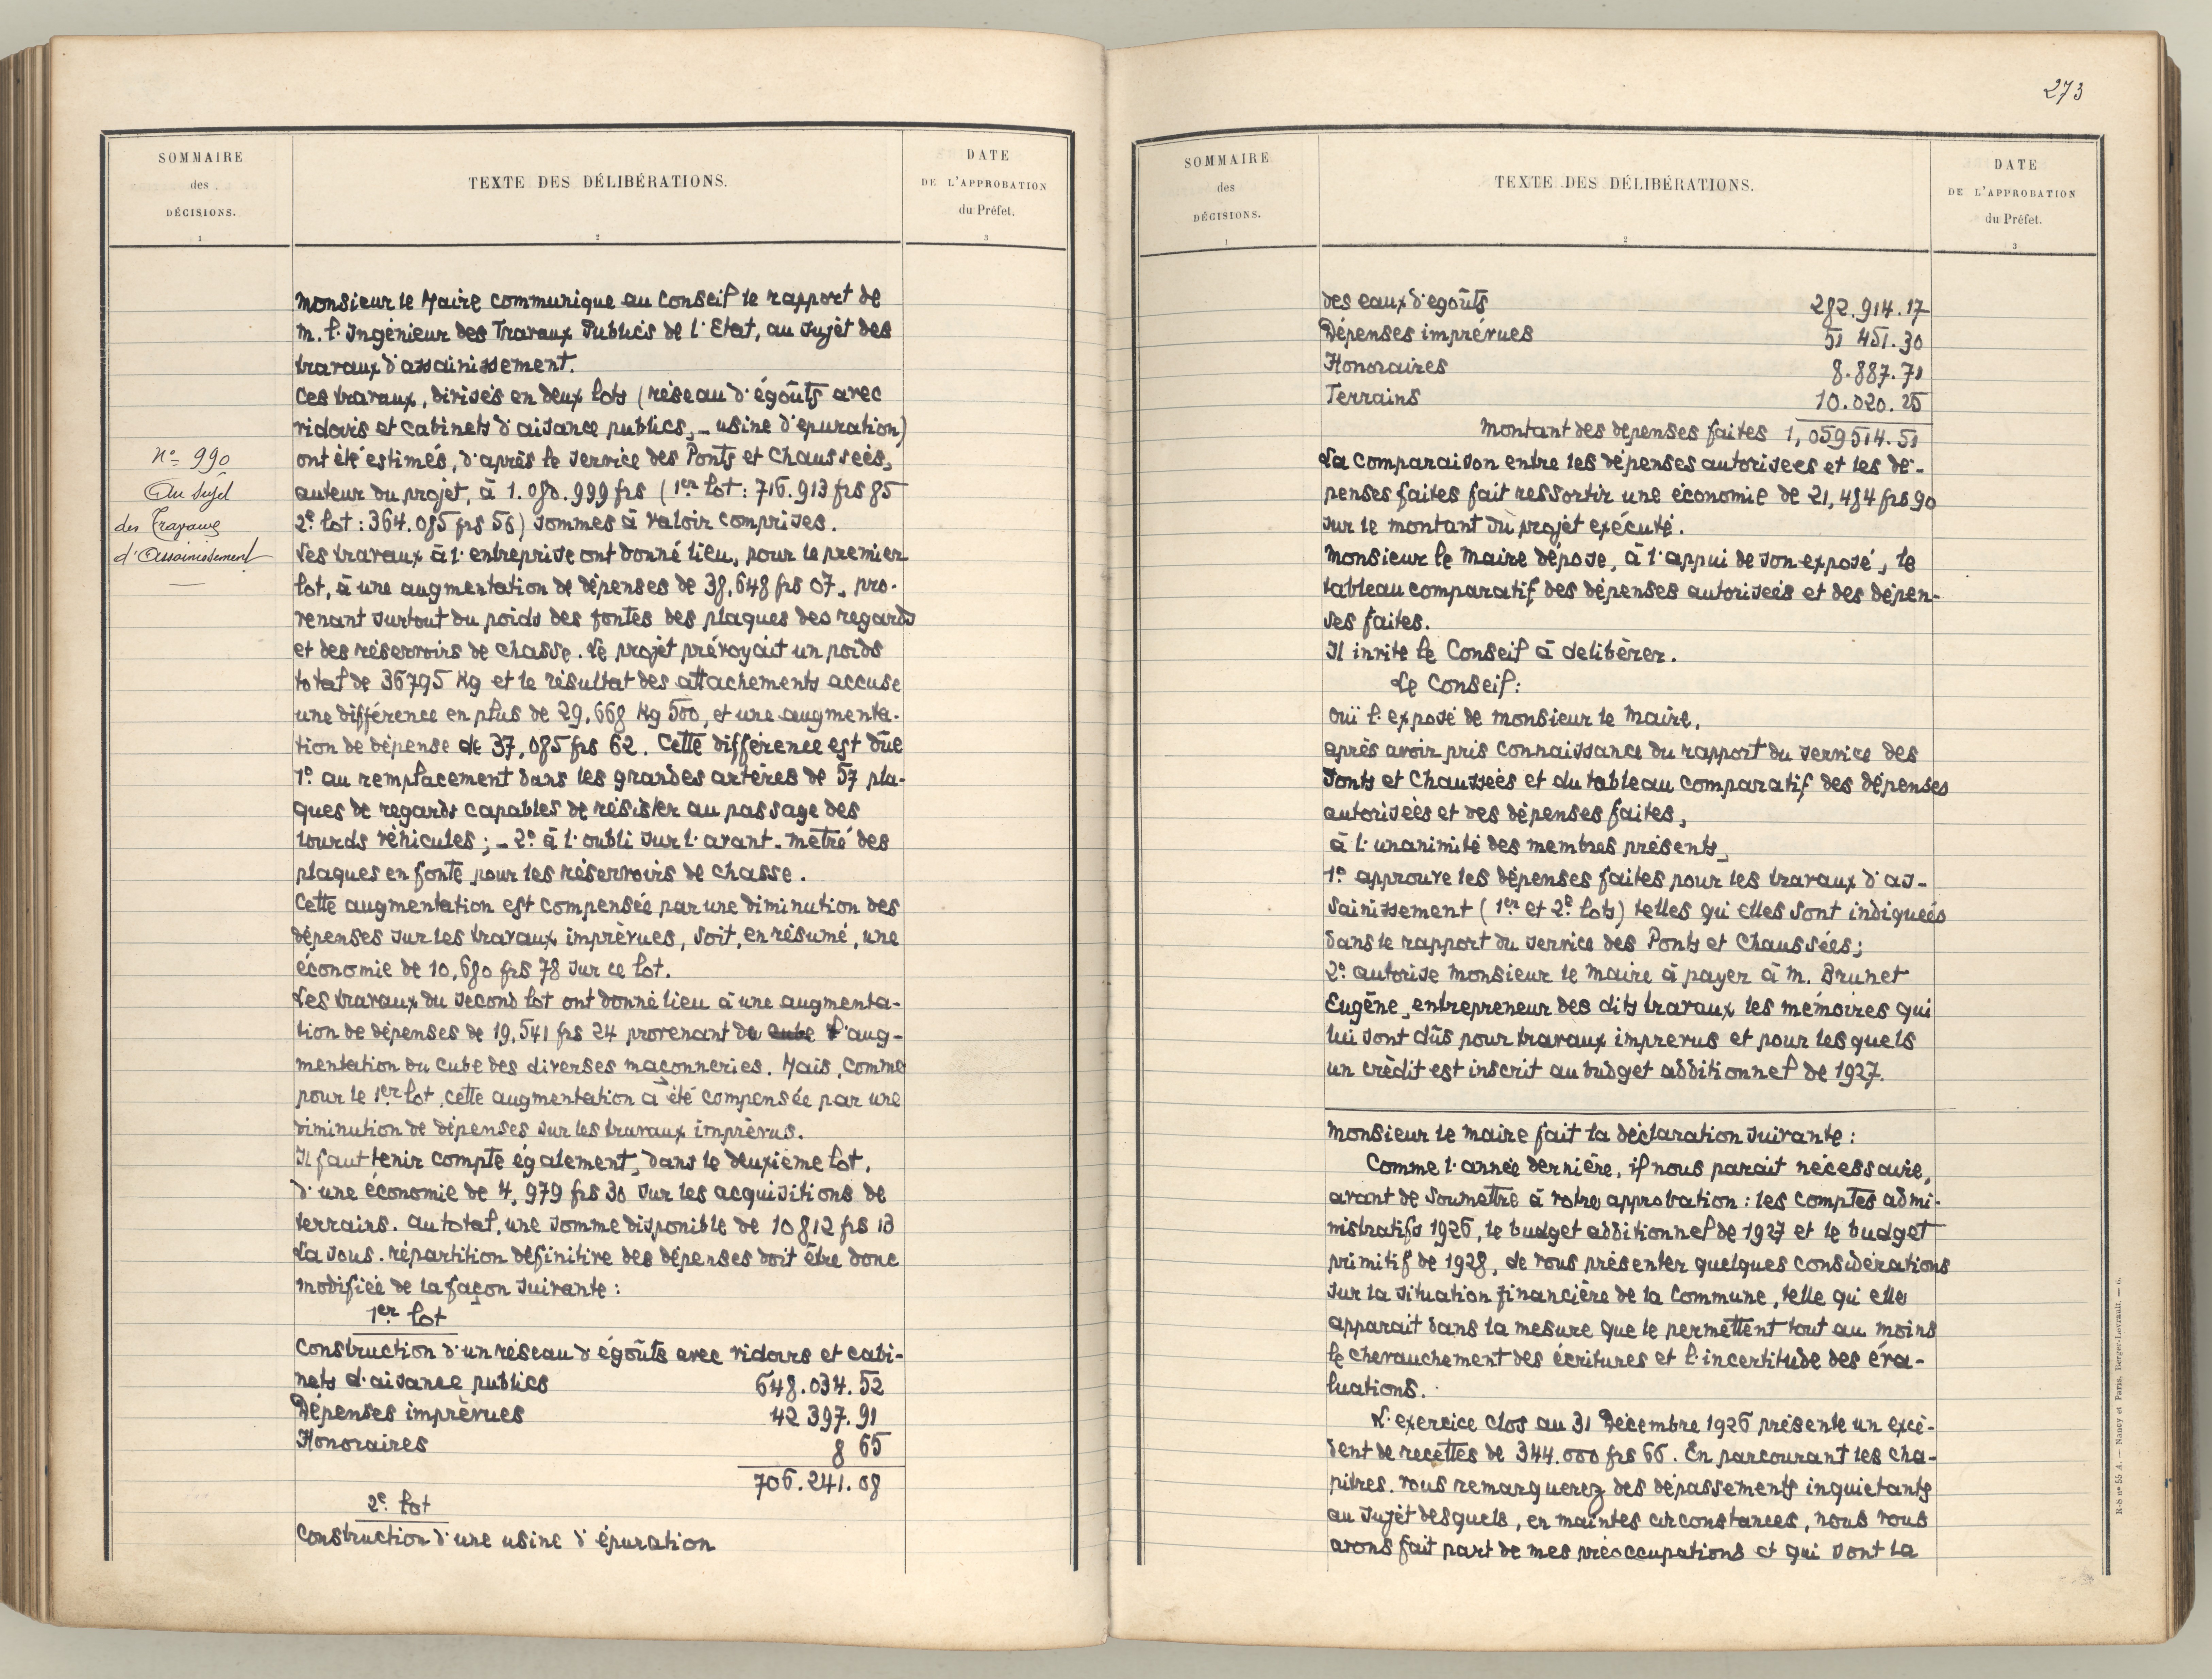 273
SOMMAIRE
des
DÉCISIONS.
1
TEXTE DES DÉLIBÉRATIONS.
2
DATE
DE L'APPROBATION
du Préfet.
3
N° 990
Au sujet
des Travaux
d'Assainissement
Monsieur le Maire communique au Conseil le rapport de
M. l'Ingénieur des Travaux Publics de l'Etat, au sujet des
travaux d'assainissement.
Ces travaux, divisés en deux lots (réseau d'égoûts avec
vidoirs et cabinets d'aisance publics, – usine d'epuration)
ont été estimés, d'après le service des Ponts et Chaussées,
auteur du projet, à 1.080.999 frs (1er lot : 716.913 frs 85
2e lot : 364.085 frs 56) sommes à valoir comprises.
Les travaux à l'entreprise ont donné lieu, pour le premier
lot, à une augmentation de dépenses de 38,648 frs 07, pro-
venant surtout du poids des fontes des plaques des regards
et des réservoirs de chasse. Le projet prévoyait un poids
total de 36795 Kg et le résultat des attachements accuse
une différence en plus de 29,668 Kg 500, et une augmenta-
tion de dépense de 37,085 frs 62. Cette différence est dûe
1° au remplacement dans les grandes artères de 57 pla-
ques de regards capables de résister au passage des
lourds véhicules ; – 2° à l'oubli sur l'avant-métré des
plaques en fonte pour les réservoirs de chasse.
Cette augmentation est compensée par une diminution des
dépenses sur les travaux imprévues, soit, en résumé, une
économie de 10,680 frs 78 sur ce lot.
Les travaux du second lot ont donné lieu à une augmenta-
tion de dépenses de 19,541 frs 24 provenant de cube l'aug-
mentation du cube des diverses maçonneries. Mais, comme
pour le 1er lot, cette augmentation a été compensée par une
diminution de dépenses sur les travaux imprévus.
Il faut tenir compte également, dans le deuxième lot,
d'une économie de 4,979 frs 30 sur les acquisitions de
terrains. Au total, une somme disponible de 10812 frs 13
La sous-répartition définitive des dépenses doit être donc
modifiée de la façon suivante :
1er lot
Construction d'un réseau d'égoûts avec vidoirs et cabi-
nets d'aisance publics 648.034.52
Dépenses imprévues 42 397.91
Honoraires 8 65
706.241.08
2e lot
Construction d'une usine d'épuration
SOMMAIRE
des
DÉCISIONS.
1
TEXTE DES DÉLIBÉRATIONS.
2
DATE
DE L'APPROBATION
du Préfet.
3
des eaux d'egoûts 282.914.17
Dépenses imprévues 51 451.30
Honoraires 8.887.71
Terrains 10.020.25
Montant des depenses faites 1,059514.51
La comparaison entre les dépenses autorisees et les dé-
penses faites fait ressortir une économie de 21,484 frs 90
sur le montant du projet exécuté.
Monsieur le Maire dépose, à l'appui de son exposé, le
tableau comparatif des dépenses autorisées et des dépen-
ses faites.
Il invite le Conseil à delibérer.
Le Conseil :
Ouï l'exposé de Monsieur le Maire,
après avoir pris connaissance du rapport du service des
Ponts et Chaussées et du tableau comparatif des dépenses
autorisées et des dépenses faites,
à l'unanimité des membres présents,
1° approuve les dépenses faites pour les travaux d'as-
sainissement (1er et 2e lots) telles qu'elles sont indiquées
dans le rapport du service des Ponts et Chaussées ;
2° autorise Monsieur le Maire à payer à M. Brunet
Eugène, entrepreneur des dits travaux les mémoires qui
lui sont dûs pour travaux imprevus et pour lesquels
un crédit est inscrit au budget additionnel de 1927.
Monsieur le Maire fait la déclaration suivante :
Comme l'année dernière, il nous parait nécessaire,
avant de soumettre à votre approbation : les comptes admi-
nistratifs 1926, le budget additionnel de 1927 et le budget
primitif de 1928, de vous présenter quelques considérations
sur la situation financière de la Commune, telle qu'elle
apparait dans la mesure que le permettent tout au moins
le chevauchement des écritures et l'incertitude des éva-
luations.
L'exercice clos au 31 Décembre 1926 présente un excé-
dent de recettes de 344.000 frs 66. En parcourant les cha-
pitres, vous remarquerez des dépassements inquietants
au sujet desquels, en maintes circonstances, nous vous
avons fait part de mes préoccupations et qui sont la
R-S n° 55 A. — Nancy et Paris, Berger-Levrault. — 6.